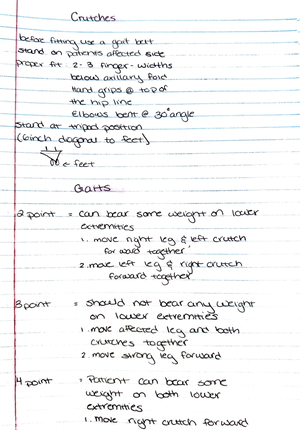 Crutches
before fitting use a gait belt
stand on patients affected side
proper fit: 2-3 finger-widths
below axillary fold
Hand grips @ top of
the hip line
Elbows bent @ 30° angle
stand at tripod position
(6inch diagonal to feet)
← feet
Gaits
2 point = can bear some weight on lower
extremities
1. move right leg & left crutch
forward together
2. move left leg & right crutch
forward together
3 point = should not bear any weight
on lower extremities
1. move affected leg and both
crutches together
2. move strong leg forward
4 point = Patient can bear some
weight on both lower
extremities
1. move right crutch forward